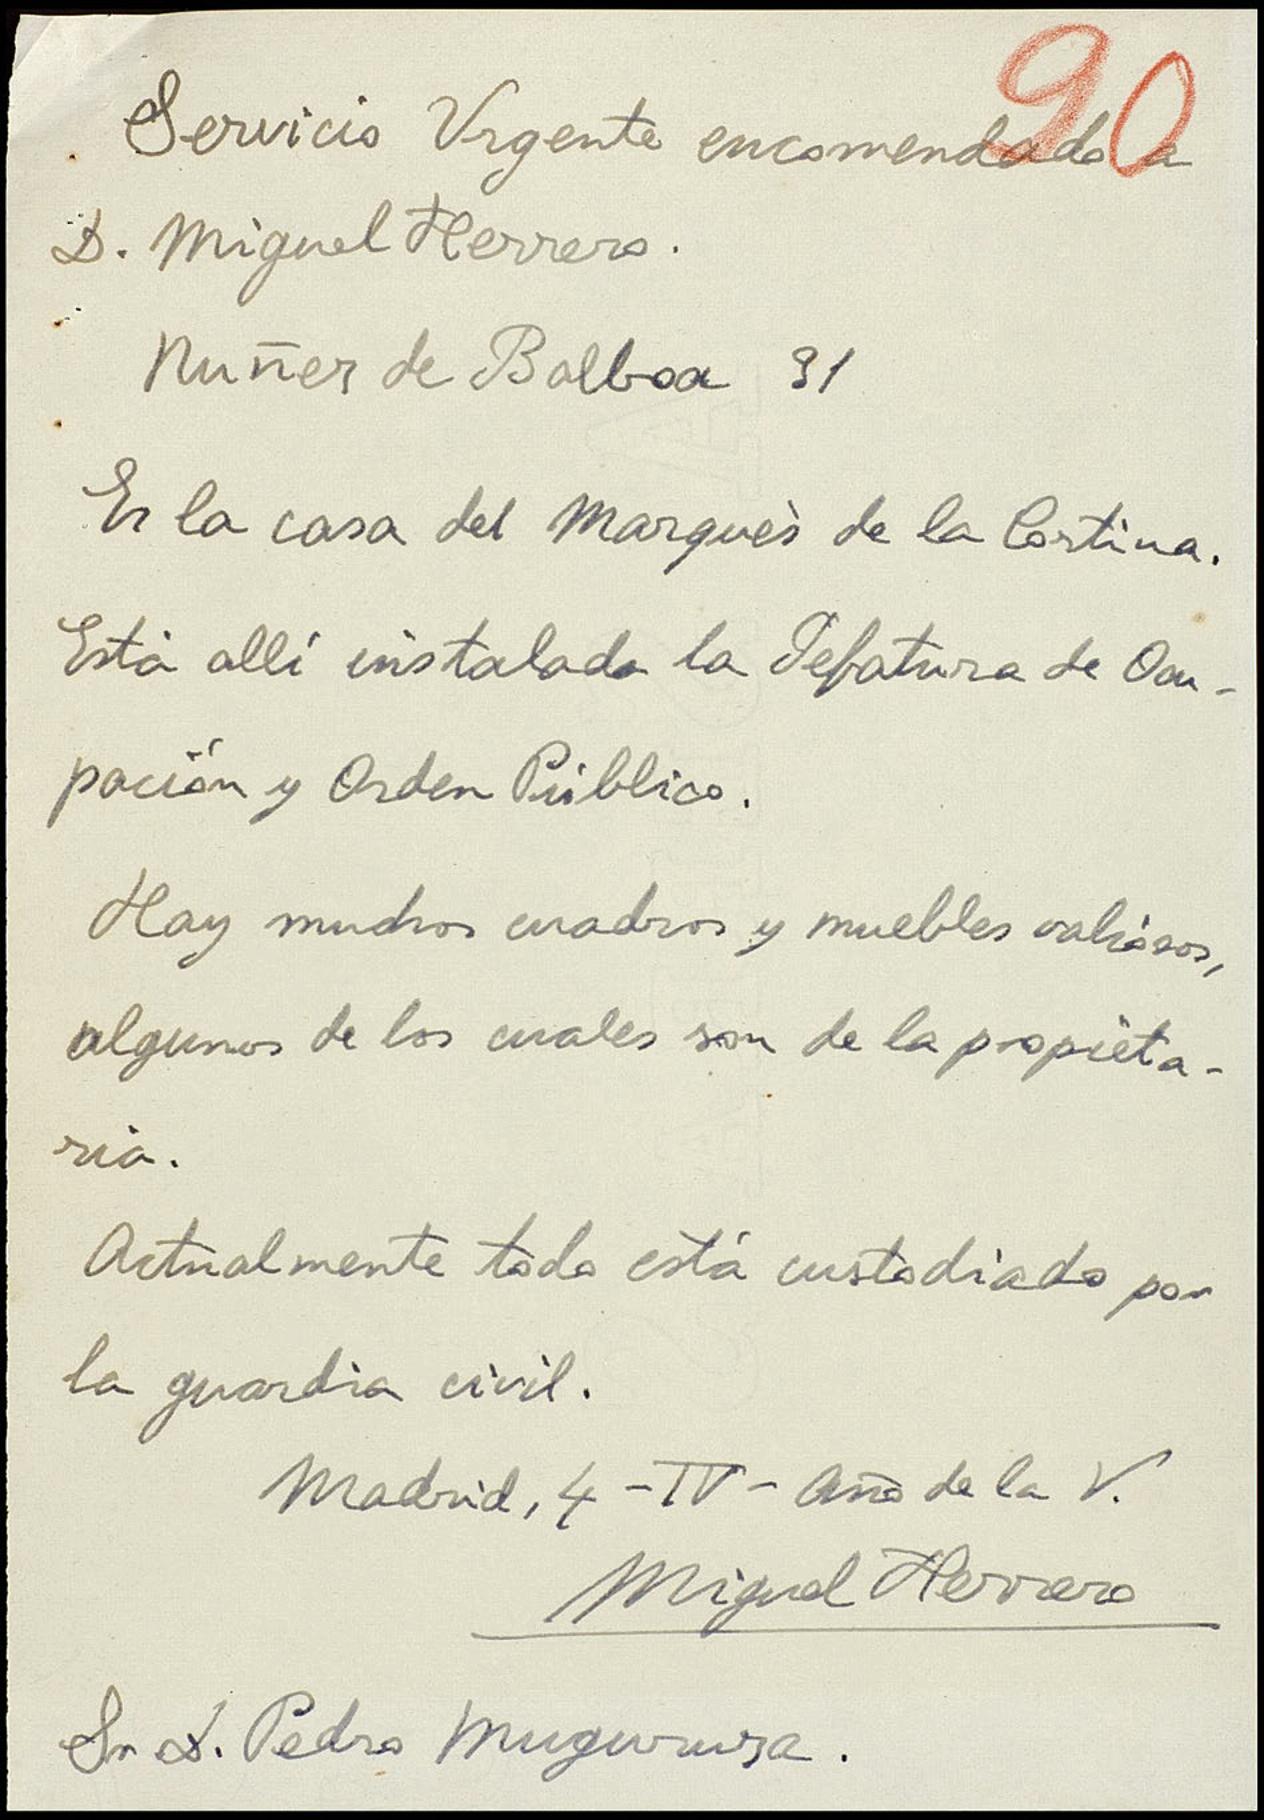 90
Servicio Urgente encomendado a
D. Miguel Herrero.
Nuñez de Balboa 31
Es la casa del Marqués de la Cortina.
Está allí instalada la Jefatura de Ocu-
pación y Orden Público.
Hay muchos cuadros y muebles valiosos,
algunos de los cuales son de la propieta-
ria.
Actualmente todo está custodiado por
la guardia civil.
Madrid, 4 - IV - Año de la V.
Miguel Herrero
Sr. D. Pedro Muguruza.